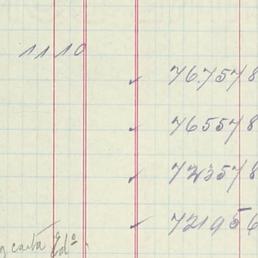 11.10
✓ 767578
✓ 765578
✓ 723578
✓ 721956
carta Edº.